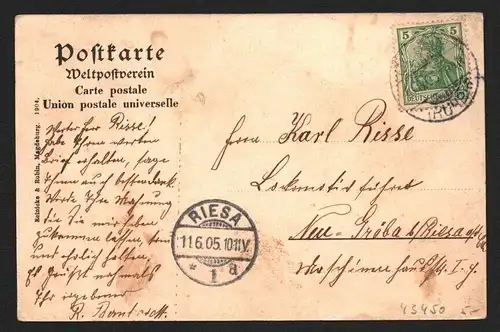 Postkarte
Weltpostverein
Carte postale
Union postale universelle
5 5
Reinicke & Rubin, Magdeburg. 1904.
Werter Herr Risse!
Habe Ihren werten
Brief erhalten, sage
Ihnen auch besten Dank.
Werde Ihre
die Sie mir haben
zukommen lassen,
und ehrlich halten,
Es grüßt nochmals
Ihr ergebener
R.
Herrn Karl Risse
Lokomotivführer
Neu-Gröba b/Riesa a/
Maschinenhaus
RIESA
11.6.05. 10-11V.
* 1 a
43450 5-